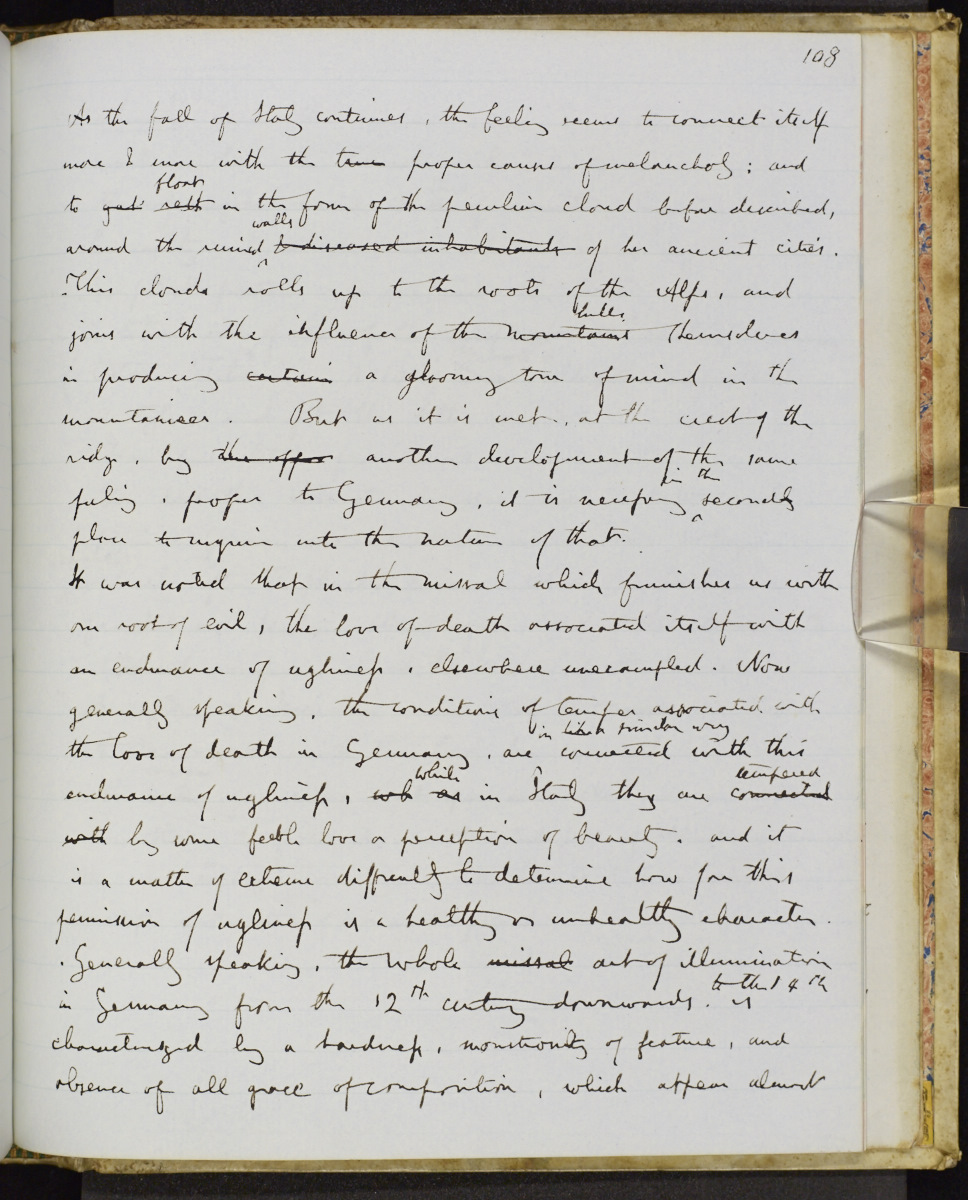 108
As the fall of Italy continues, the feeling seems to connect itself
more & more with the true proper causes of melancholy; and
float
to rest in the form of the peculiar cloud before described,
walls
around the ruined & diseased inhabitants of her ancient cities.
This clouds rolls up to the roots of the Alps, and
hills
joins with the influence of the mountains themselves
in producing certain a gloomy tone of mind in the
mountaineer. But as it is met, at the crest of the
ridge, by the another development of the same
in the
feeling, proper to Germany, it is necessary secondly
place to inquire into the nature of that.
It was noted that in the missal which furnishes us with
our root of evil, the love of death associated itself with
an endurance of ugliness, elsewhere unexampled. Now
generally speaking, the conditions of temper associated with
in similar way
the love of death in Germany, are connected with this
while tempered
endurance of ugliness, as in Italy they are connected
with by some feeble love or perception of beauty. and it
is a matter of extreme difficulty to determine how far this
permission of ugliness is a healthy or unhealthy character.
Generally speaking, the whole missal art of illumination
to the 14th
in Germany from the 12th century downwards. is
characterized by a hardness, monstrosity of feature, and
absence of all grace of composition, which appear almost